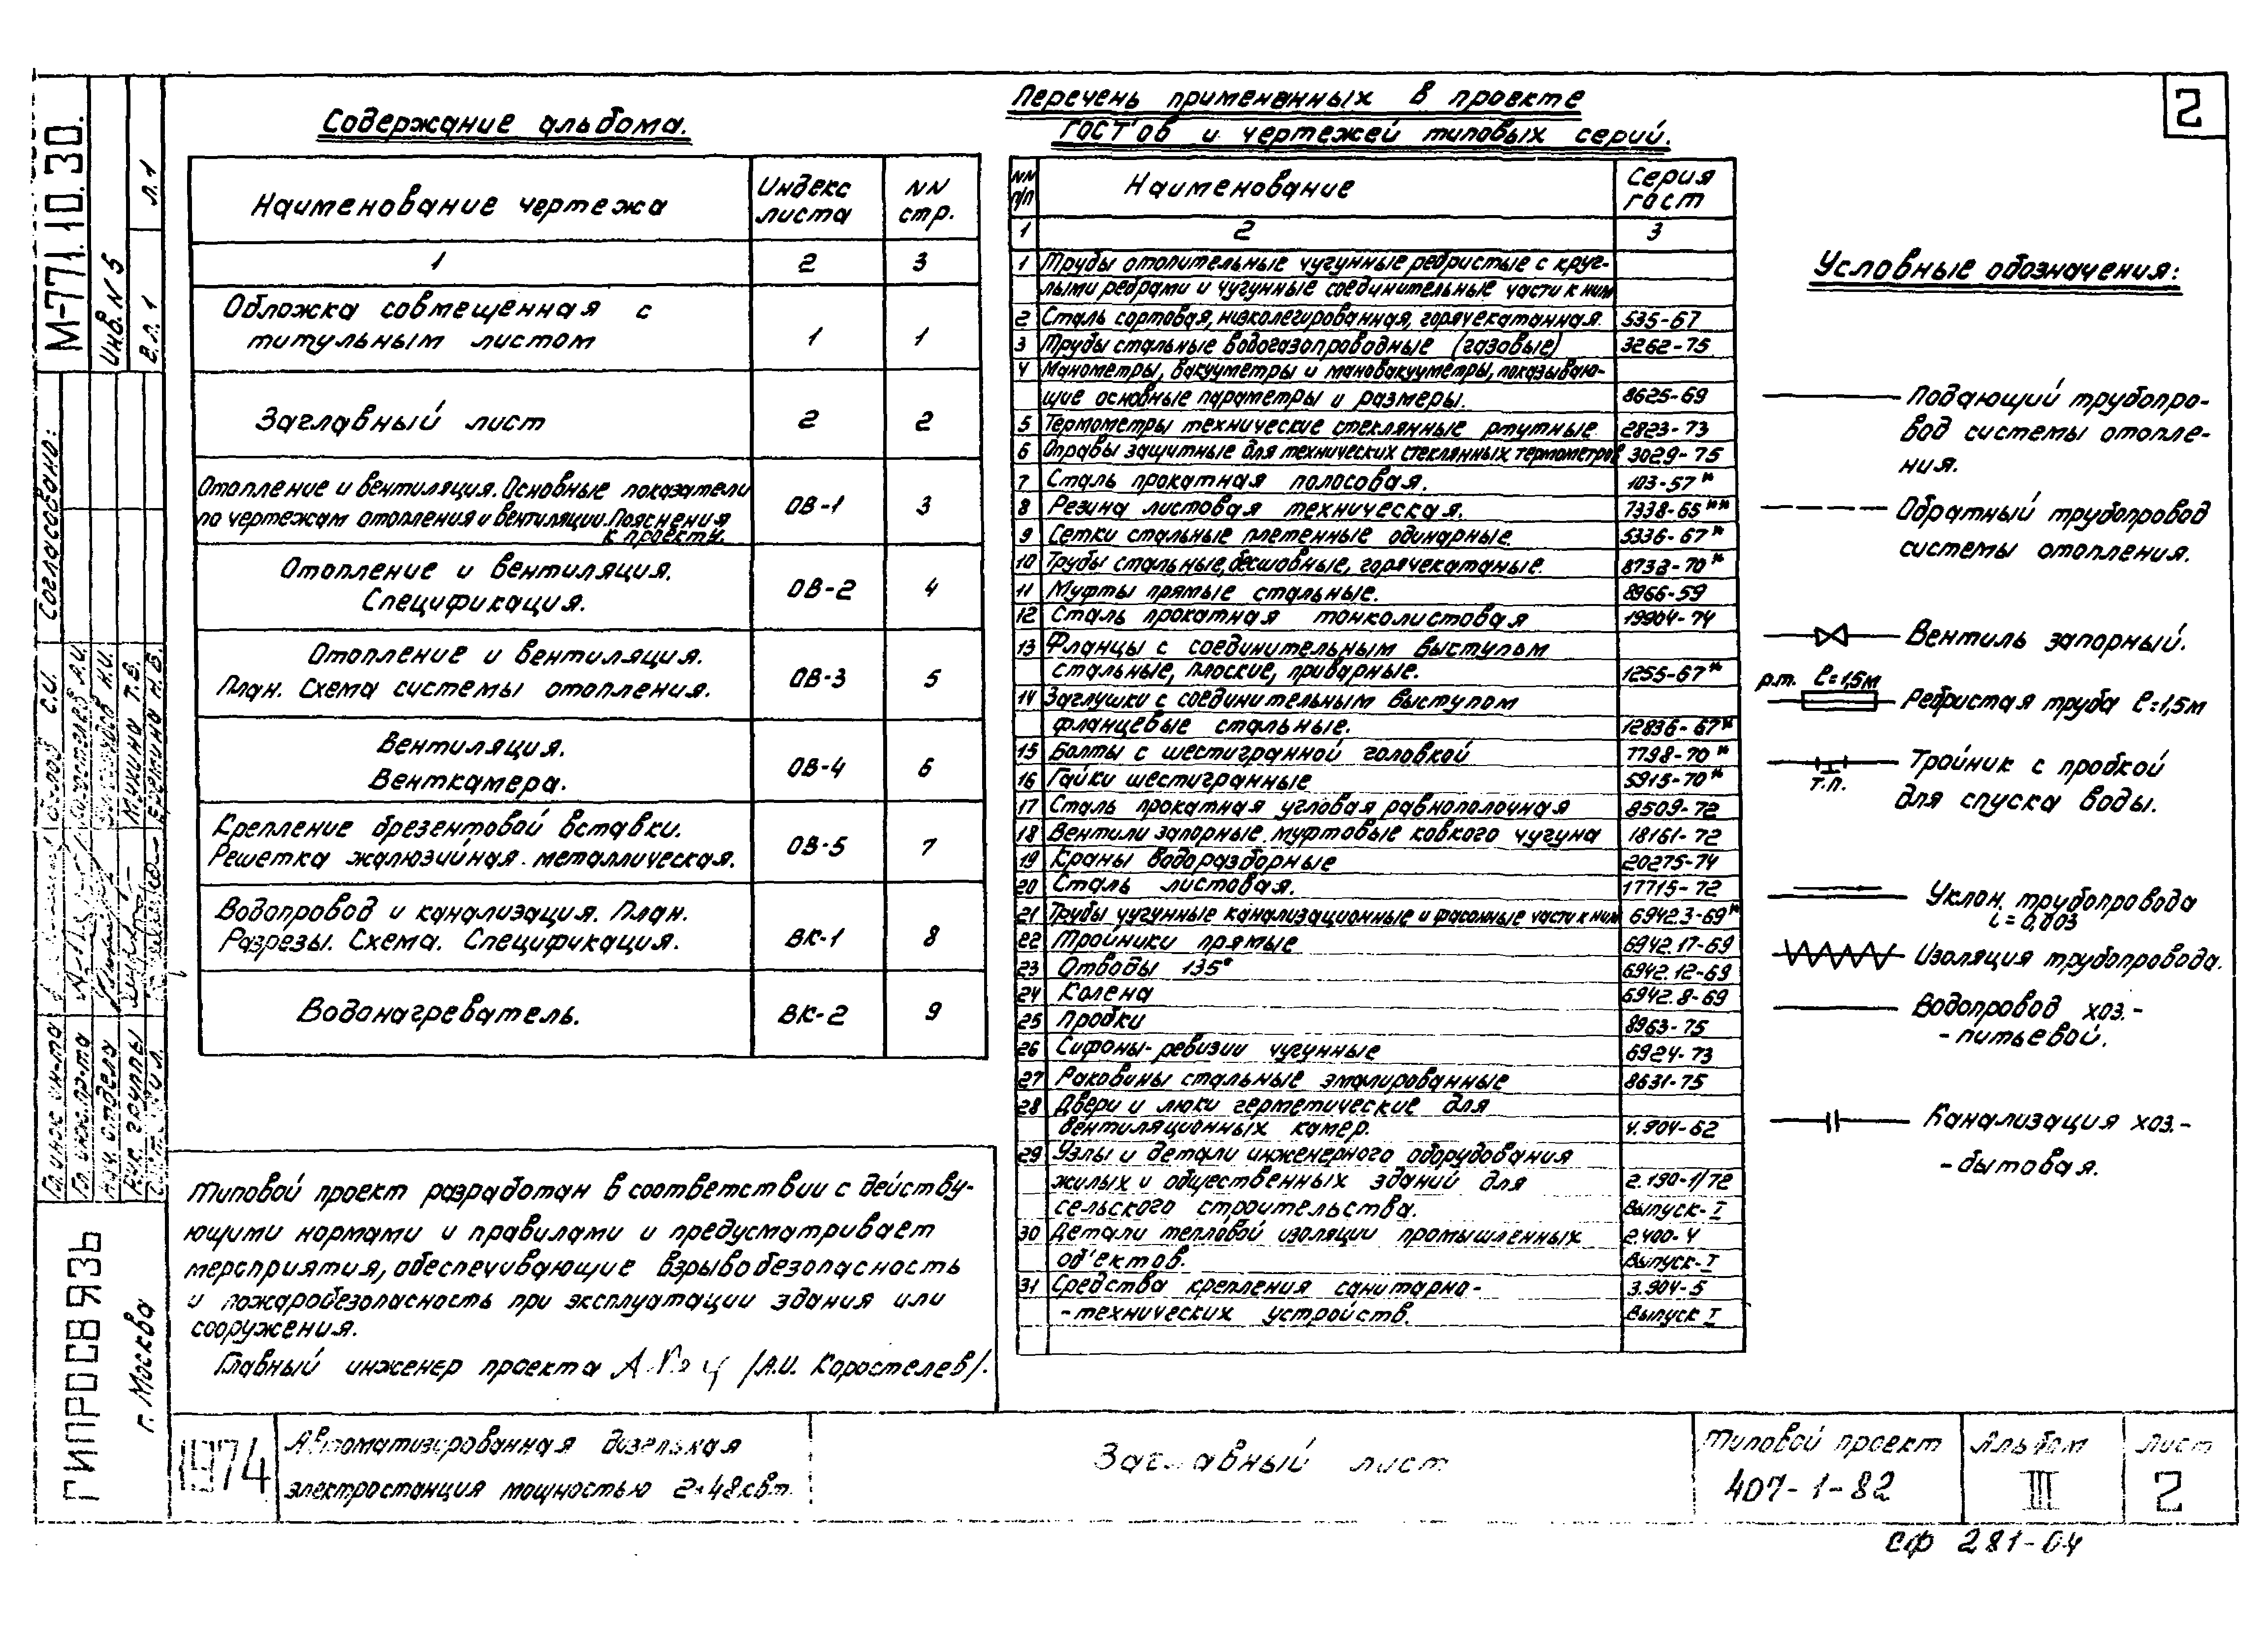 2
М-771.10.30.
Инв. N 5
г.л. 1
л. 1
Согласовано:
Мухина Т.В.
Гл. инж. ин-та
Гл. инж. пр-та
Нач. отдела
Рук. группы
ГИПРОСВЯЗЬ
г. Москва
Содержание альбома.
Наименование чертежа
Индекс листа
NN стр.
1 2 3
Обложка совмещенная с
титульным листом 1 1
Заглавный лист 2 2
Отопление и вентиляция. Основные показатели
по чертежам отопления и вентиляции. Пояснения ОВ-1 3
к проекту.
Отопление и вентиляция.
Спецификация. ОВ-2 4
Отопление и вентиляция.
План. Схема системы отопления. ОВ-3 5
Вентиляция.
Венткамера. ОВ-4 6
Крепление брезентовой вставки.
Решетка жалюзийная металлическая. ОВ-5 7
Водопровод и канализация. План.
Разрезы. Схема. Спецификация. ВК-1 8
Водонагреватель. ВК-2 9
Типовой проект разработан в соответствии с действу-
ющими нормами и правилами и предусматривает
мероприятия, обеспечивающие взрывобезопасность
и пожаробезопасность при эксплуатации здания или
сооружения.
Главный инженер проекта /А.И. Коростелев/.
Перечень примененных в проекте
ГОСТ'ов и чертежей типовых серий.
NN п/п
Наименование
Серия гост
1 2 3
1 Трубы отопительные чугунные ребристые с круг-
лыми ребрами и чугунные соединительные части к ним
2 Сталь сортовая, низколегированная, горячекатанная. 535-67
3 Трубы стальные водогазопроводные (газовые) 3262-75
4 Манометры, вакууметры и мановакууметры, показываю-
щие основные параметры и размеры. 8625-69
5 Термометры технические стеклянные ртутные 2823-73
6 Оправы защитные для технических стеклянных термометров 3029-75
7 Сталь прокатная полосовая. 103-57*
8 Резина листовая техническая. 7338-65**
9 Сетки стальные плетенные одинарные. 5336-67*
10 Трубы стальные, бесшовные, горячекатаные. 8732-70*
11 Муфты прямые стальные. 8966-59
12 Сталь прокатная тонколистовая 19904-74
13 Фланцы с соединительным выступом
стальные, плоские, приварные. 1255-67*
14 Заглушки с соединительным выступом
фланцевые стальные. 12836-67*
15 Болты с шестигранной головкой 7798-70*
16 Гайки шестигранные 5915-70*
17 Сталь прокатная угловая равнополочная 8509-72
18 Вентили запорные муфтовые ковкого чугуна 18161-72
19 Краны водоразборные 20275-74
20 Сталь листовая. 17715-72
21 Трубы чугунные канализационные и фасонные части к ним 6942.3-69*
22 Тройники прямые 6942.17-69
23 Отводы 135° 6942.12-69
24 Колена 6942.8-69
25 Пробки 8963-75
26 Сифоны-ревизии чугунные 6924-73
27 Раковины стальные эмалированные 8631-75
28 Двери и люки герметические для
вентиляционных камер. 4.904-62
29 Узлы и детали инженерного оборудования
жилых и общественных зданий для 2.190-1/72
сельского строительства. Выпуск-I
30 Детали тепловой изоляции промышленных 2.400-4
об'ектов. Выпуск-I
31 Средства крепления санитарно- 3.904-5
-технических устройств. Выпуск I
Условные обозначения:
Подающий трубопро-
вод системы отопле-
ния.
Обратный трубопровод
системы отопления.
Вентиль запорный.
р.т. ℓ=1,5м
Ребристая труба ℓ=1,5м
Тройник с пробкой
т.п.
для спуска воды.
Уклон трубопровода
i=0,003
Изоляция трубопровода.
Водопровод хоз.-
-питьевой.
Канализация хоз.-
-бытовая.
1974
Автоматизированная дизельная
электростанция мощностью 2×48квт.
Заглавный лист
Типовой проект
407-1-82
Альбом
III
Лист
2
СФ 281-04